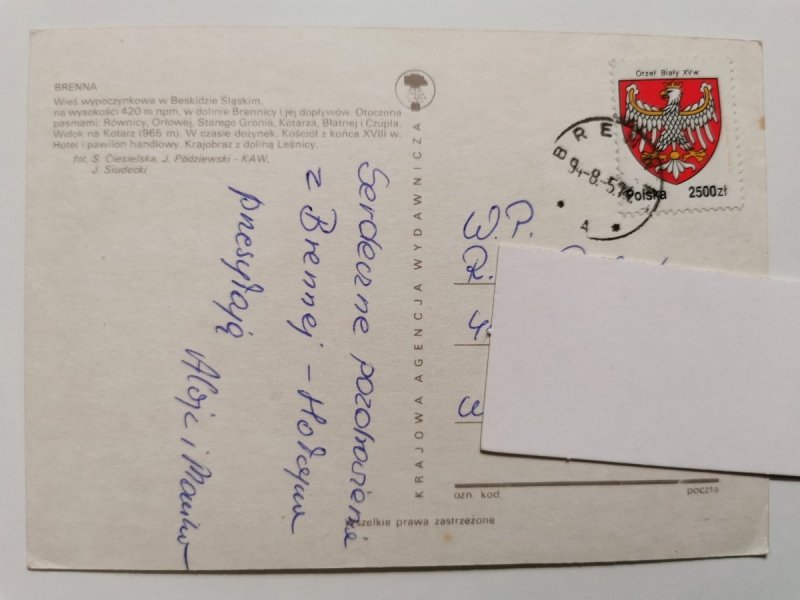 BRENNA
Wieś wypoczynkowa w Beskidzie Śląskim,
na wysokości 420 m npm, w dolinie Brennicy i jej dopływów. Otoczona
pasmami: Równicy, Orłowej, Starego Gronia, Kotarza, Błatnej i Czupla.
Widok na Kotarz (965 m). W czasie dożynek. Kościół z końca XVIII w.
Hotel i pawilon handlowy. Krajobraz z doliną Leśnicy.
fot. S. Ciesielska, J. Podziewski - KAW,
J. Siudecki
Serdeczne pozdrowienia
z Brennej – Hołcyna
przesyłają
Alojz i
KRAJOWA AGENCJA WYDAWNICZA
Orzeł Biały XV w.
Polska 2500 zł
BRE
A
ozn. kod poczta
wszelkie prawa zastrzeżone